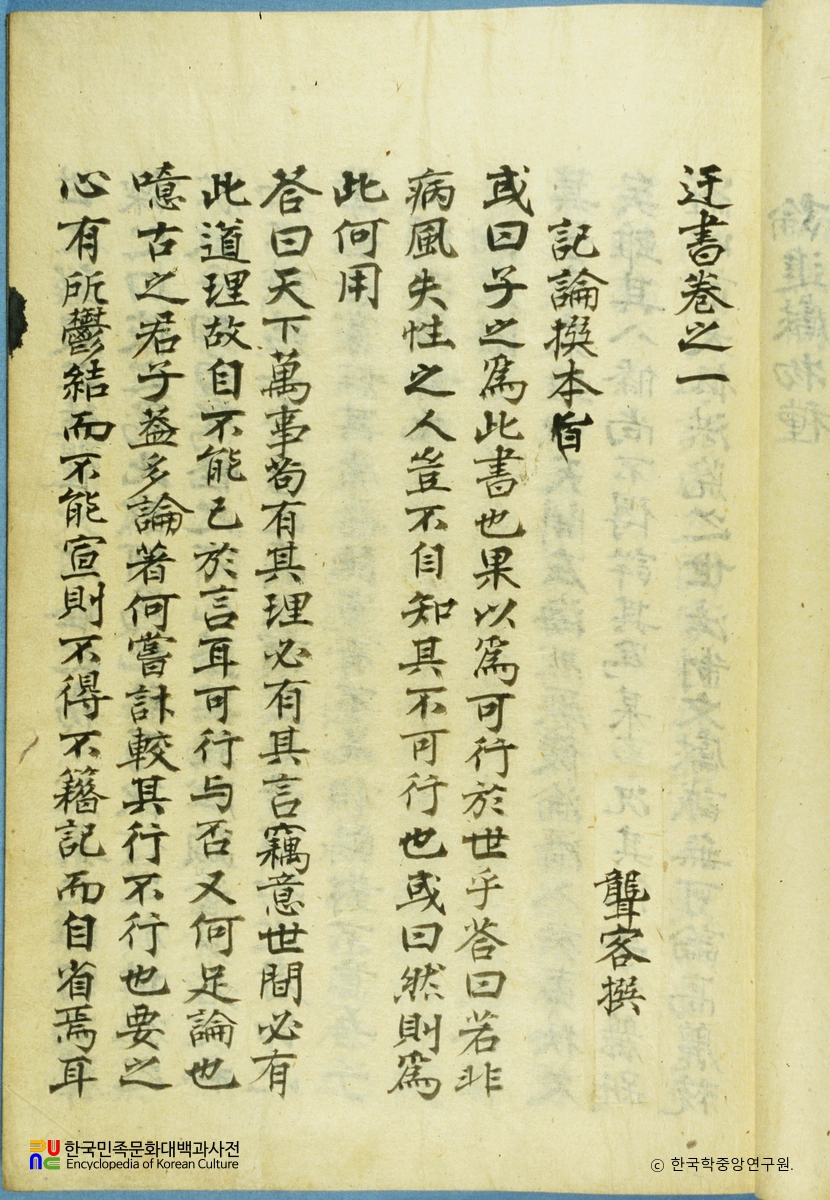 迂書卷之一
聾客撰
記論撰本旨
或曰子之爲此書也果以爲可行於世乎答曰若非
病風失性之人豈不自知其不可行也或曰然則爲
此何用
答曰天下萬事苟有其理必有其言竊意世間必有
此道理故自不能已於言耳可行与否又何足論也
噫古之君子益多論著何嘗計較其行不行也要之
心有所鬱結而不能宣則不得不籍記而自省焉耳
論進獻物種
한국민족문화대백과사전
Encyclopedia of Korean Culture
ⓒ 한국학중앙연구원.